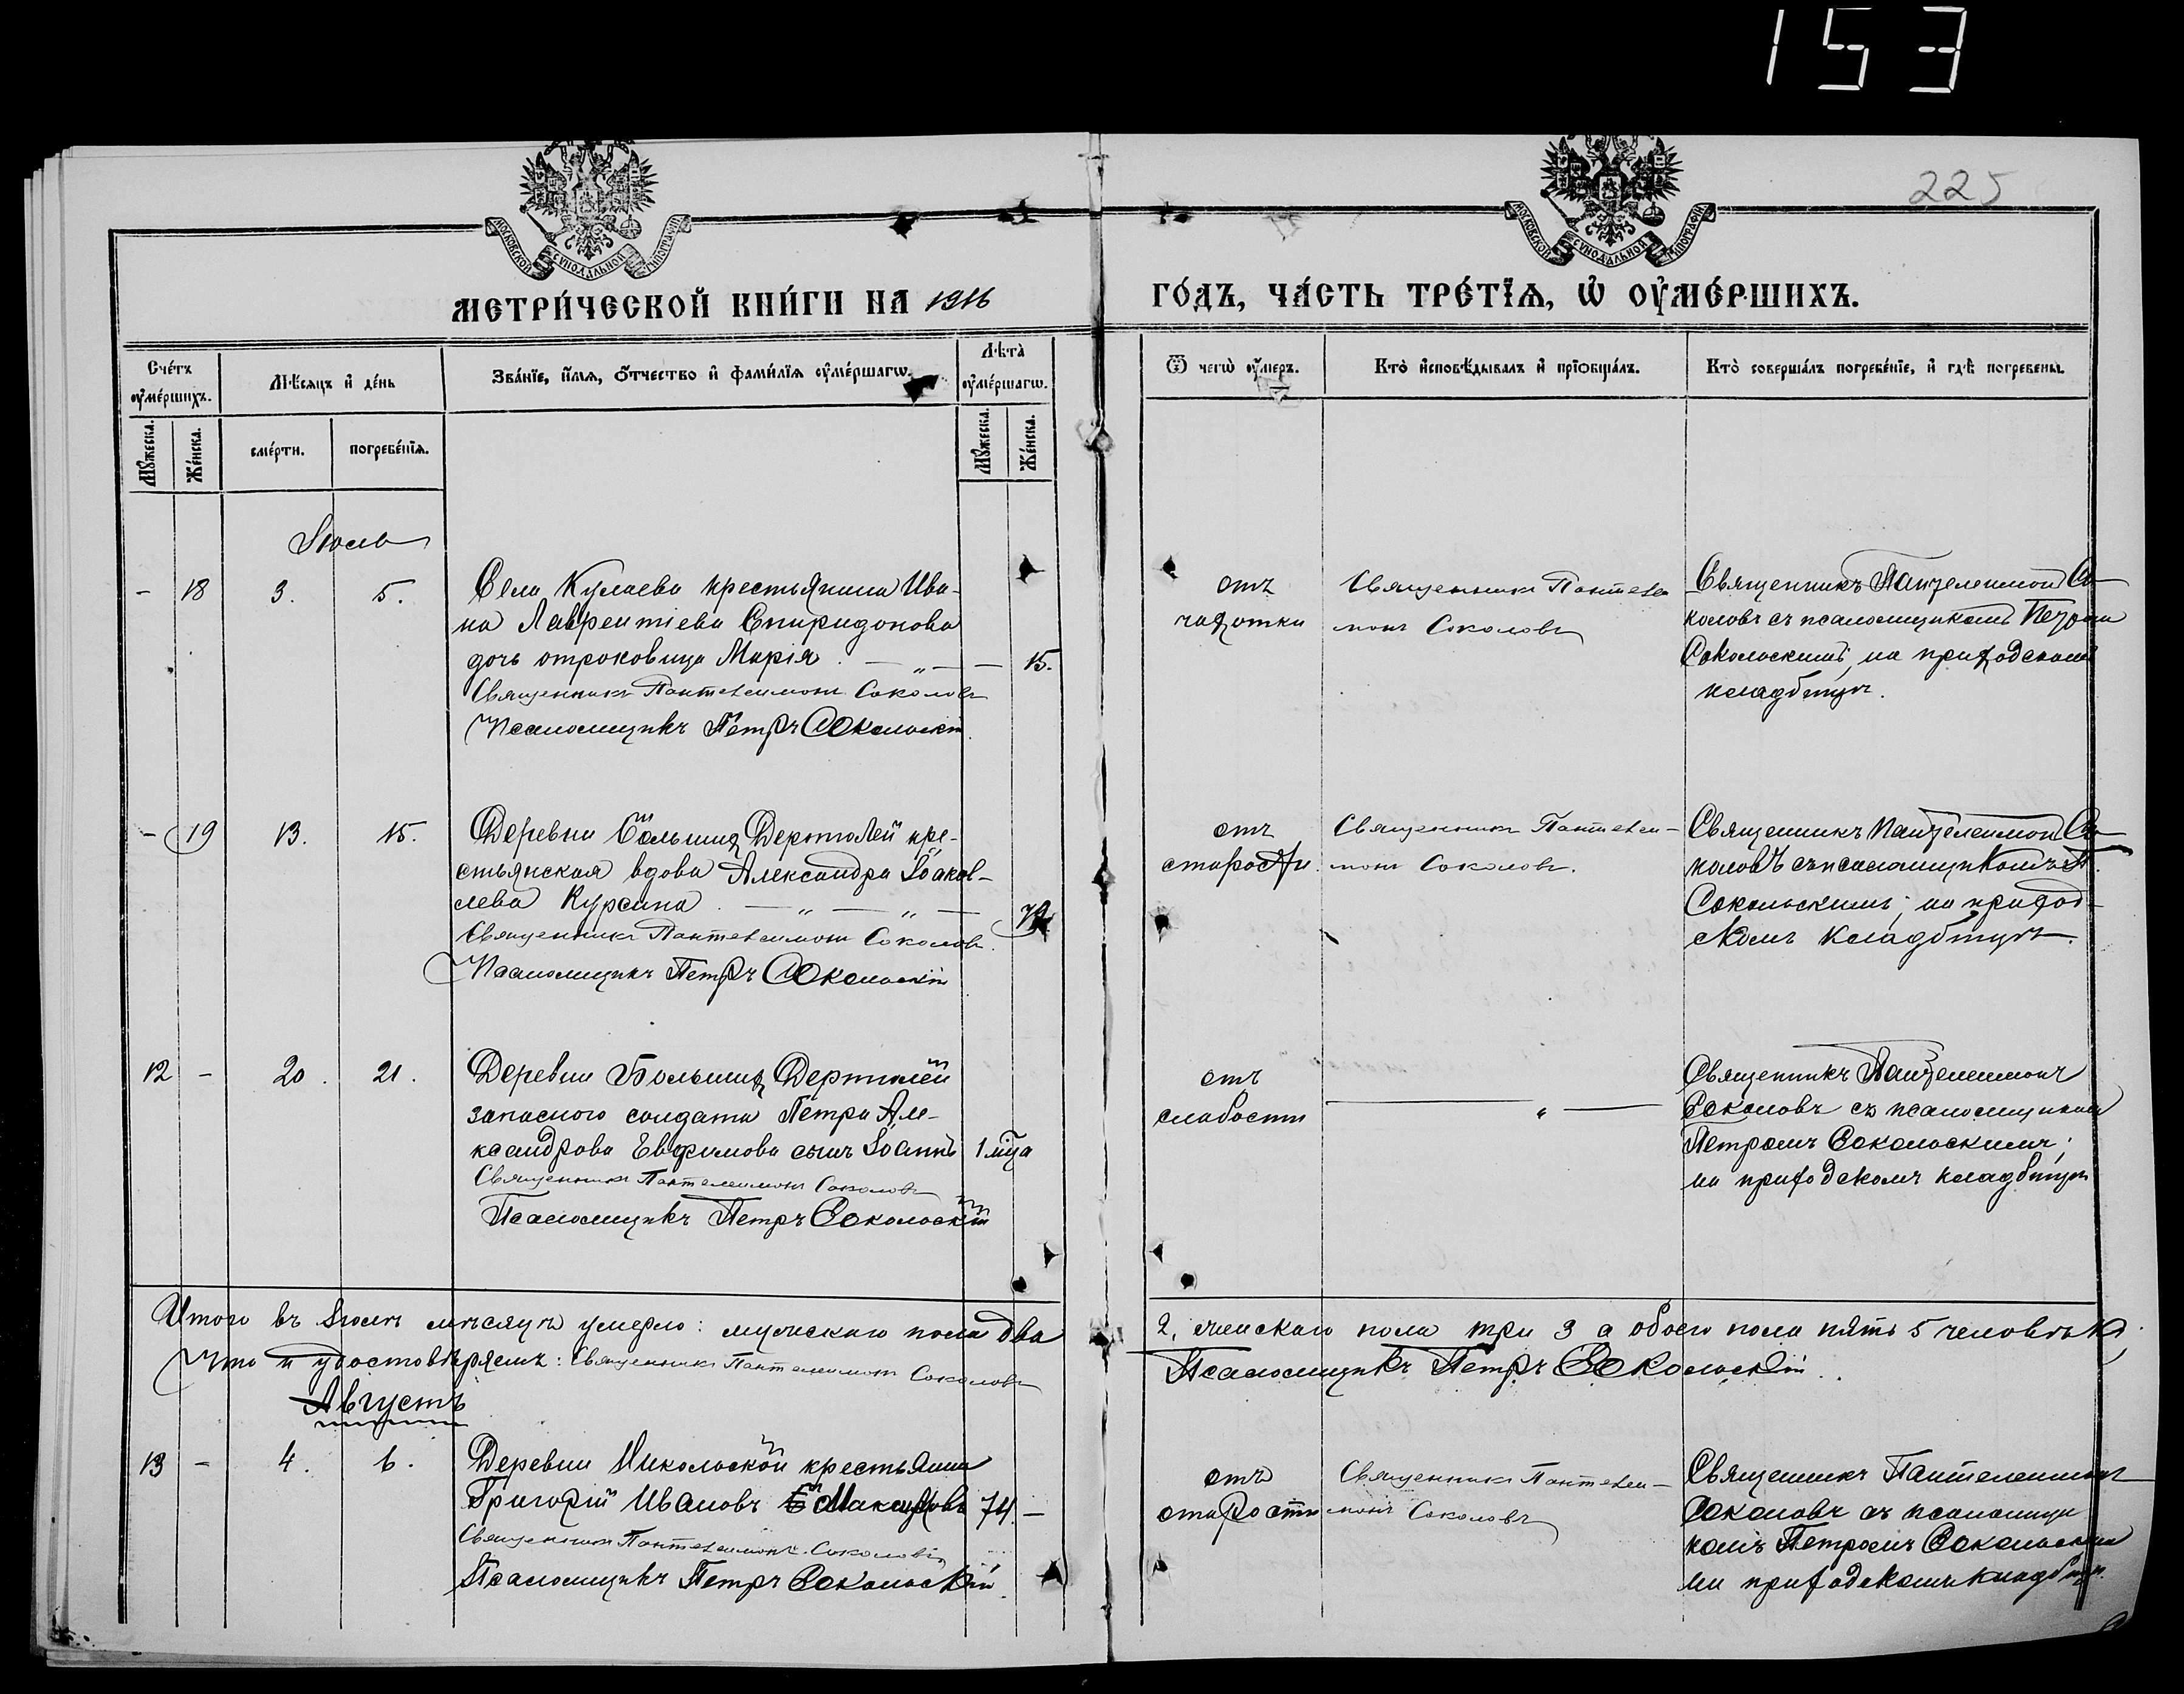 153
225
МОСКОВСКОЙ СѴНОДАЛЬНОЙ ТИПОГРАФІИ
МОСКОВСКОЙ СѴНОДАЛЬНОЙ ТИПОГРАФІИ
МЕТРИ́ЧЕСКОЙ КНИ́ГИ НА 1916 ГО́ДЪ, ЧА́СТЬ ТРЕ́ТІѦ, Ѡ҆ ОУ҆МЕ́РШИХЪ.
Сче́тъ оу҆ме́ршихъ.
Мѣ́сяцъ и҆ де́нь
Зва́нїе, и҆́мѧ, ѻ҆́тчество и҆ фами́лїѧ оу҆ме́ршагѡ.
Лѣ́та̀ оу҆ме́ршагѡ.
Ѿ чегѡ̀ оу҆́меръ.
Кто̀ и҆сповѣ́дывалъ и҆ прїѡбща́лъ.
Кто̀ соверша́лъ погребе́нїе, и҆ гдѣ̀ погребены̀.
Мꙋ́жеска.
Же́нска.
сме́рти.
погребе́нїѧ.
Мꙋ́жеска.
Же́нска.
Іюль
- 18 3. 5.
Села Кулаева крестьянина Ива-
на Лаврентіева Спиридонова
дочь отроковица Марія . — „ — — 15.
Священникъ Пантелеимонъ Соколовъ
Псаломщикъ Петръ Сокольскій.
отъ
чахотки
Священникъ Пантелеи
монъ Соколовъ
Священникъ Пантелеимон Со-
коловъ съ псаломщикомъ Петромъ
Сокольскимъ, на приходскомъ
кладбищѣ.
- 19 13. 15.
Деревни Большихъ Дертюлей кре-
стьянская вдова Александра Іоаков-
лева Курсина . — „ — „ —
Священникъ Пантелеимонъ Соколовъ.
Псаломщикъ Петръ Сокольскій
отъ
старости.
Священникъ Пантелеи-
монъ Соколовъ.
Священникъ Пантелеимон Со-
коловъ съ псаломщикомъ П.
Сокольскимъ; на приход-
скомъ кладбищѣ.
12 - 20. 21.
Деревни Большихъ Дертюлей
запаснаго солдата Петра Але-
ксандрова Евфимова сынъ Іоаннъ 1 мца
Священникъ Пантелеимонъ Соколовъ
Псаломщикъ Петръ Сокольскій
отъ
слабости
— „ —
Священникъ Пантелеимонъ
Соколовъ съ псаломщикомъ
Петромъ Сокольскимъ;
на приходскомъ кладбищѣ
Итого въ Іюлѣ мѣсяцѣ умерло: мужскаго пола два 2, женскаго пола три 3 а обоего пола пять 5 человѣкъ.
Что и удостовѣряемъ: Священникъ Пантелеимонъ Соколовъ
Псаломщикъ Петръ Сокольскій.
Августъ
13 - 4. 6.
Деревни Никольской крестьянинъ
Григорій Ивановъ 74. —
Священникъ Пантелеимонъ Соколовъ
Псаломщикъ Петръ Сокольскій.
отъ
старости
Священникъ Пантелеи-
монъ Соколовъ
Священникъ Пантелеимонъ
Соколовъ съ псаломщи
комъ Петромъ Сокольскимъ
на приходскомъ кладбищѣ.